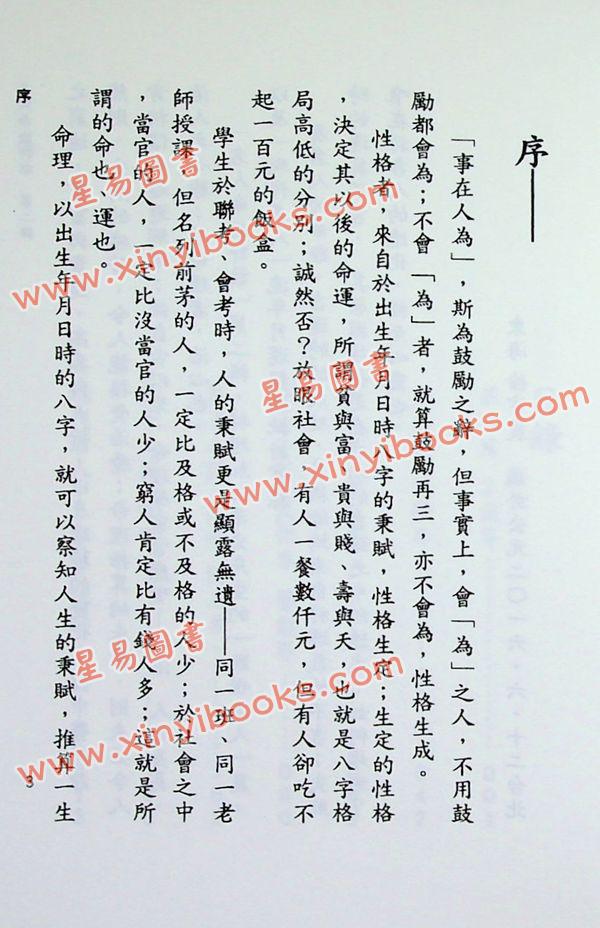 序——
「事在人為」，斯為鼓勵之辭，但事實上，會「為」之人，不用鼓
勵都會為；不會「為」者，就算鼓勵再三，亦不會為，性格生成。
性格者，來自於出生年月日時八字的秉賦，性格生定；生定的性格
，決定其以後的命運，所謂貧與富、貴與賤、壽與夭，也就是八字格
局高低的分別；誠然否？放眼社會，有人一餐數仟元，但有人卻吃不
起一百元的飯盒。
學生於聯考、會考時，人的秉賦更是顯露無遺——同一班、同一老
師授課，但名列前茅的人，一定比及格或不及格的人少；於社會之中
，當官的人，一定比沒當官的人少；窮人肯定比有錢人多；這就是所
謂的命也、運也。
命理，以出生年月日時的八字，就可以察知人生的秉賦，推算一生
序
3
星易圖書
www.xinyibooks.com
星易圖書
www.xinyibooks.com
星易圖書
www.xinyibooks.com